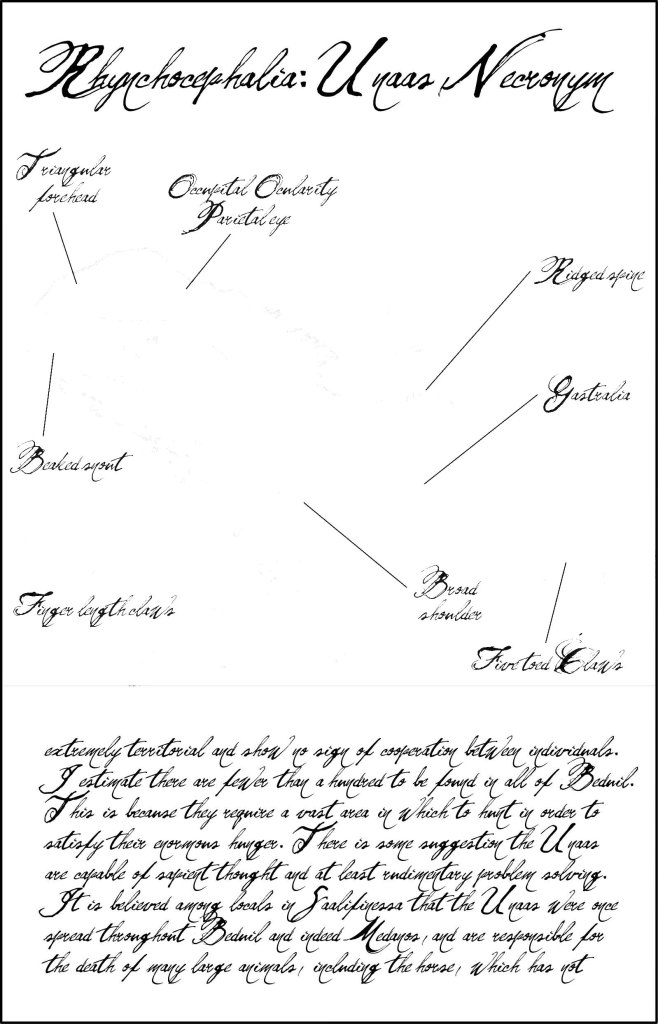 Rhynchocephalia: Unaas Necronym
Triangular
forehead
Occupital Ocularity
Parietal eye
Ridged spine
Gastralia
Beaked snout
Broad
shoulder
Finger length claws
Five toed Claws
extremely territorial and show no sign of cooperation between individuals.
I estimate there are fewer than a hundred to be found in all of Bednil.
This is because they require a vast area in which to hunt in order to
satisfy their enormous hunger. There is some suggestion the Unaas
are capable of sapient thought and at least rudimentary problem solving.
It is believed among locals in Saalifinessa that the Unaas were once
spread throughout Bednil and indeed Medanos, and are responsible for
the death of many large animals, including the horse, which has not